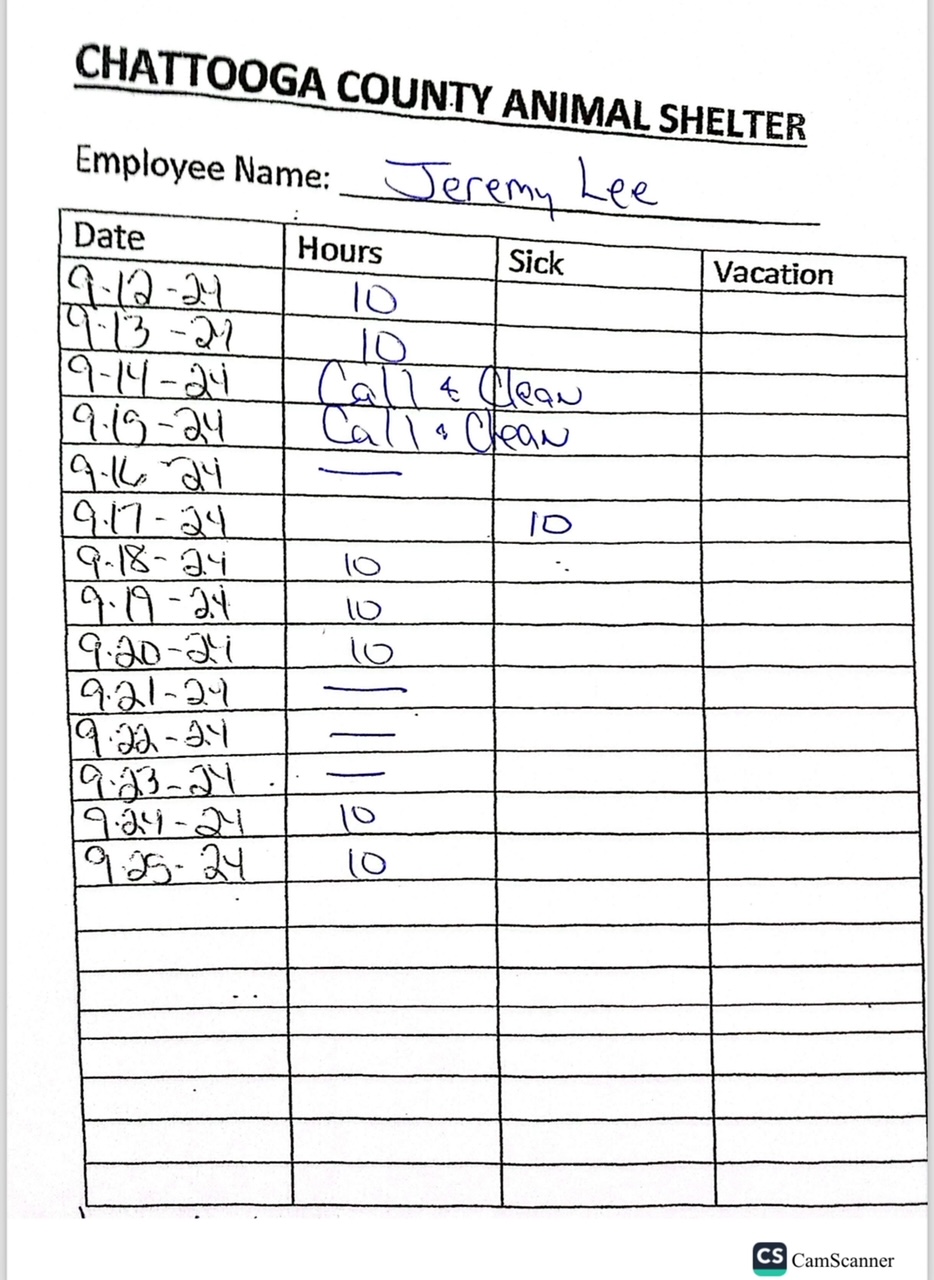 CHATTOOGA COUNTY ANIMAL SHELTER
Employee Name: Jeremy Lee
Date Hours Sick Vacation
9-12-24 10
9-13-24 10
9-14-24 Call & Clean
9-15-24 Call & Clean
9-16-24 —
9-17-24 10
9-18-24 10
9-19-24 10
9-20-24 10
9-21-24 —
9-22-24 —
9-23-24 —
9-24-24 10
9-25-24 10
CS CamScanner